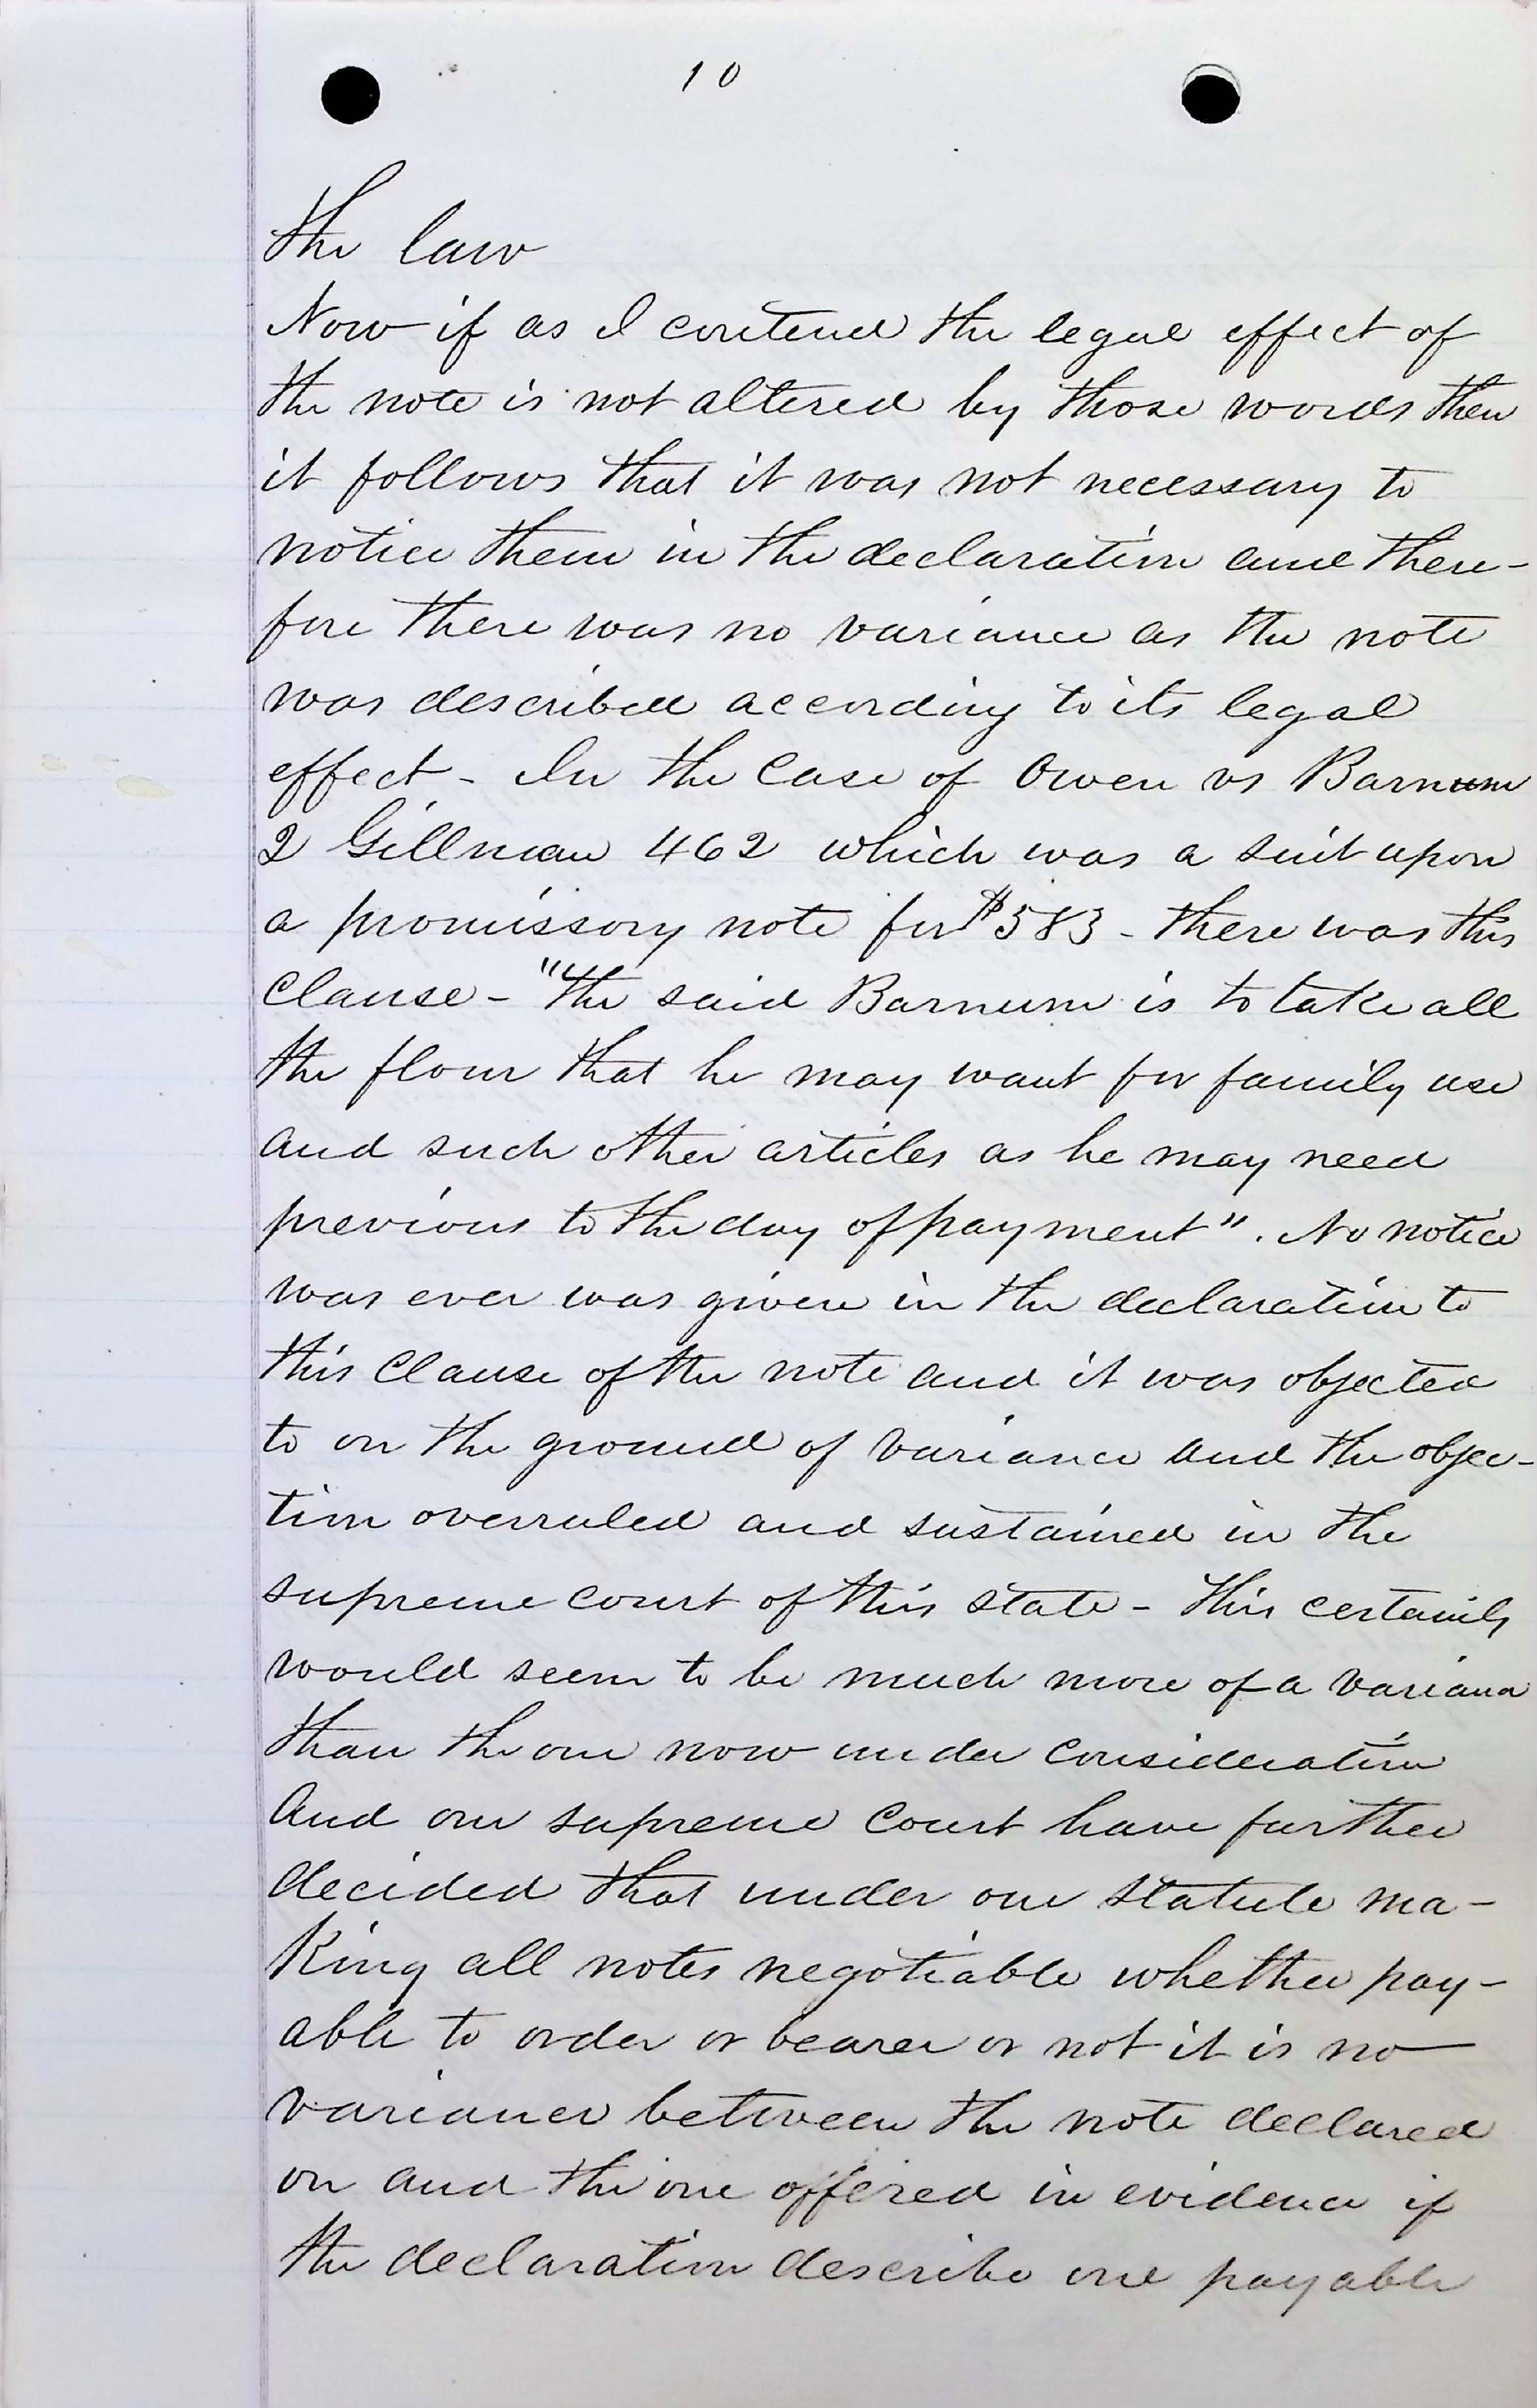 10
The law
Now if as I contend the legal effect of
the note is not altered by those words then
it follows that it was not necessary to
notice them in the declaration and there-
fore there was no variance as the note
was described according to its legal
effect - In the case of Owen vs Barnum
2 Gillman 462 which was a suit upon
a promissory note for $583 - there was this
clause - "The said Barnum is to take all
the flour that he may want for family use
and such other articles as he may need
previous to the day of payment". No notice
was ever was given in the declaration to
this clause of the note and it was objected
to on the ground of variance and the objec-
tion overruled and sustained in the
supreme court of this state - This certainly
would seem to be much more of a variance
than the one now under consideration
And our supreme court have further
decided that under our statute ma-
king all notes negotiable whether pay-
able to order or bearer or not it is no
variance between the note declared
on and the one offered in evidence if
the declaration describe one payable